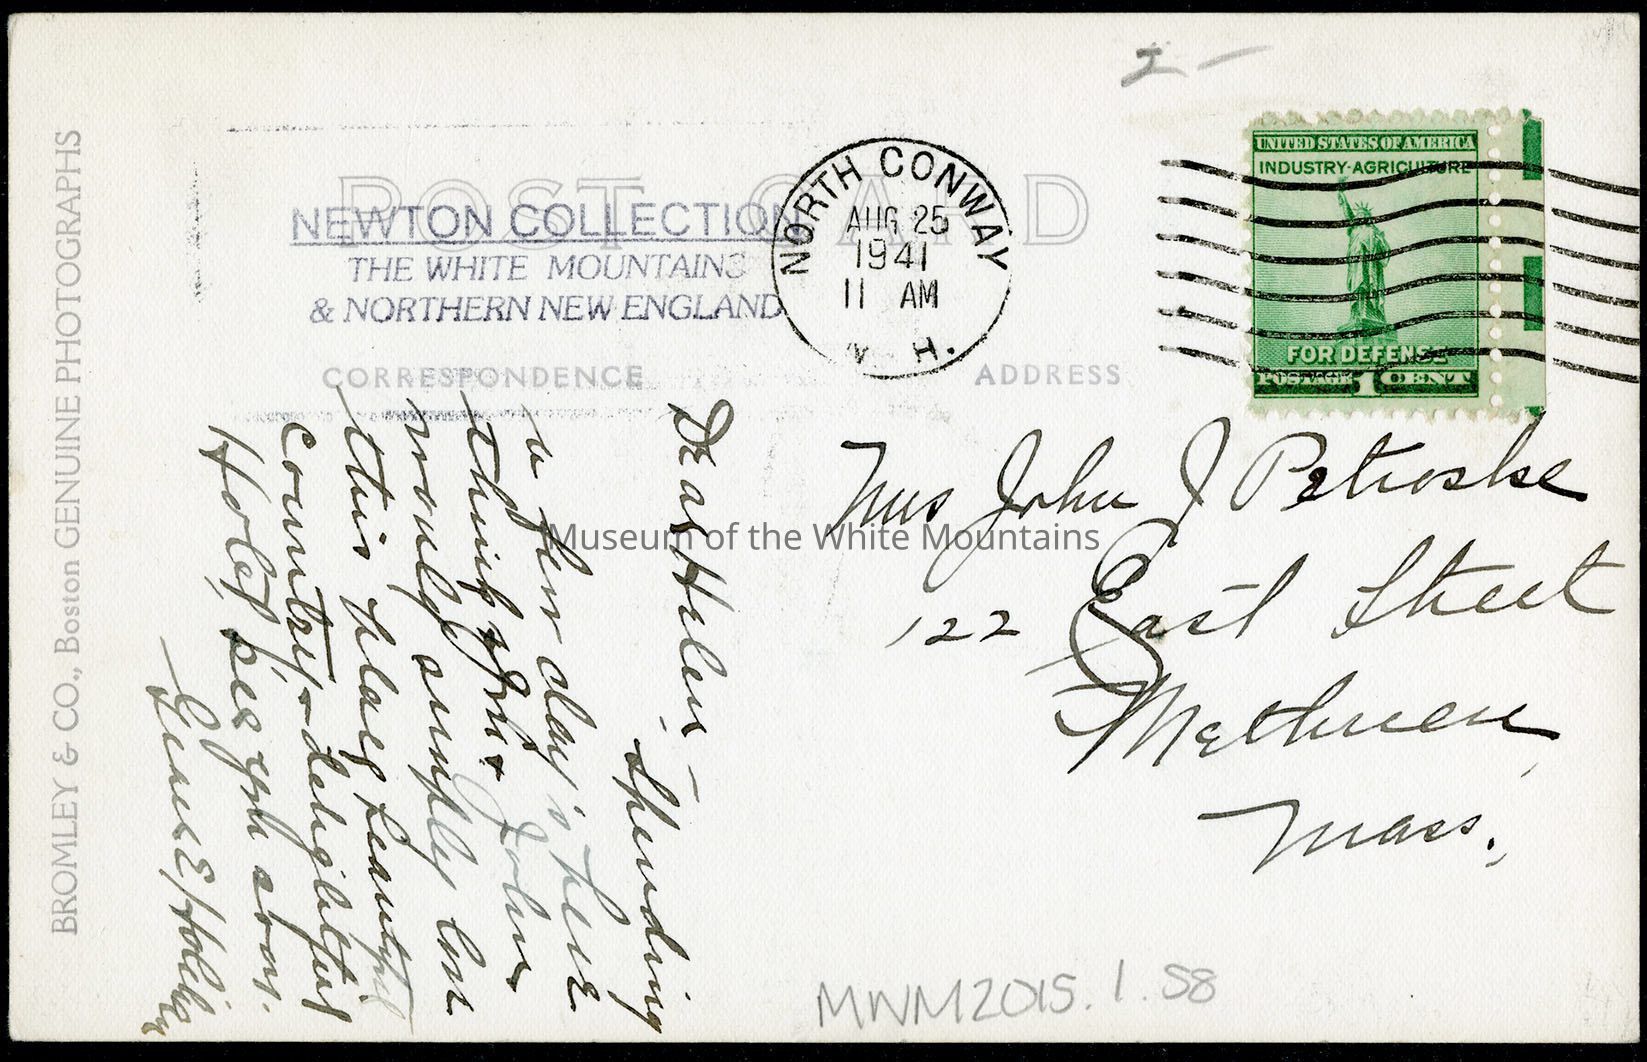 2 -
POST CARD
NEWTON COLLECTION
THE WHITE MOUNTAINS
& NORTHERN NEW ENGLAND
CORRESPONDENCE
ADDRESS
NORTH CONWAY
AUG 25
1941
11 AM
N. H.
UNITED STATES OF AMERICA
INDUSTRY-AGRICULTURE
FOR DEFENSE
POSTAGE 1 CENT
BROMLEY & CO., Boston GENUINE PHOTOGRAPHS
Dear Helen -
Spending
a few day's here
think you & John
would simply love
this place, beautiful
country, & delightful
Hotel, see you soon.
Mrs John J Petroske
122 East Street
Methuen,
Mass.,
Museum of the White Mountains
MWM2015.1.58